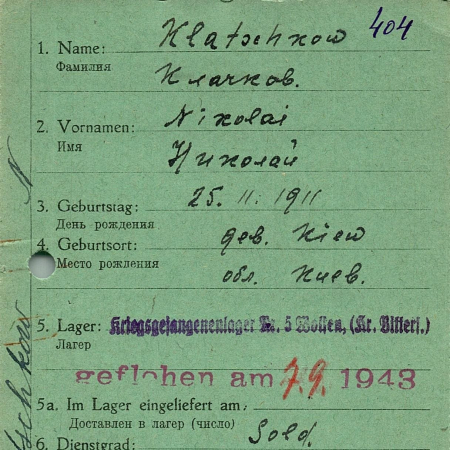 404
1. Name: Klatschkow
Фамилия Клачков.
2. Vornamen: Nikolai
Имя Николай
3. Geburtstag: 25. 11. 1911
День рождения
4. Geburtsort: дер. Kiew
Место рождения обл. Киев.
5. Lager: Kriegsgefangenenlager Nr. 5 Wolfen, (Kr. Bitterf.)
Лагерь
geflohen am 7.9. 1943
5a. Im Lager eingeliefert am:
Доставлен в лагерь (число)
6. Dienstgrad: Sold.